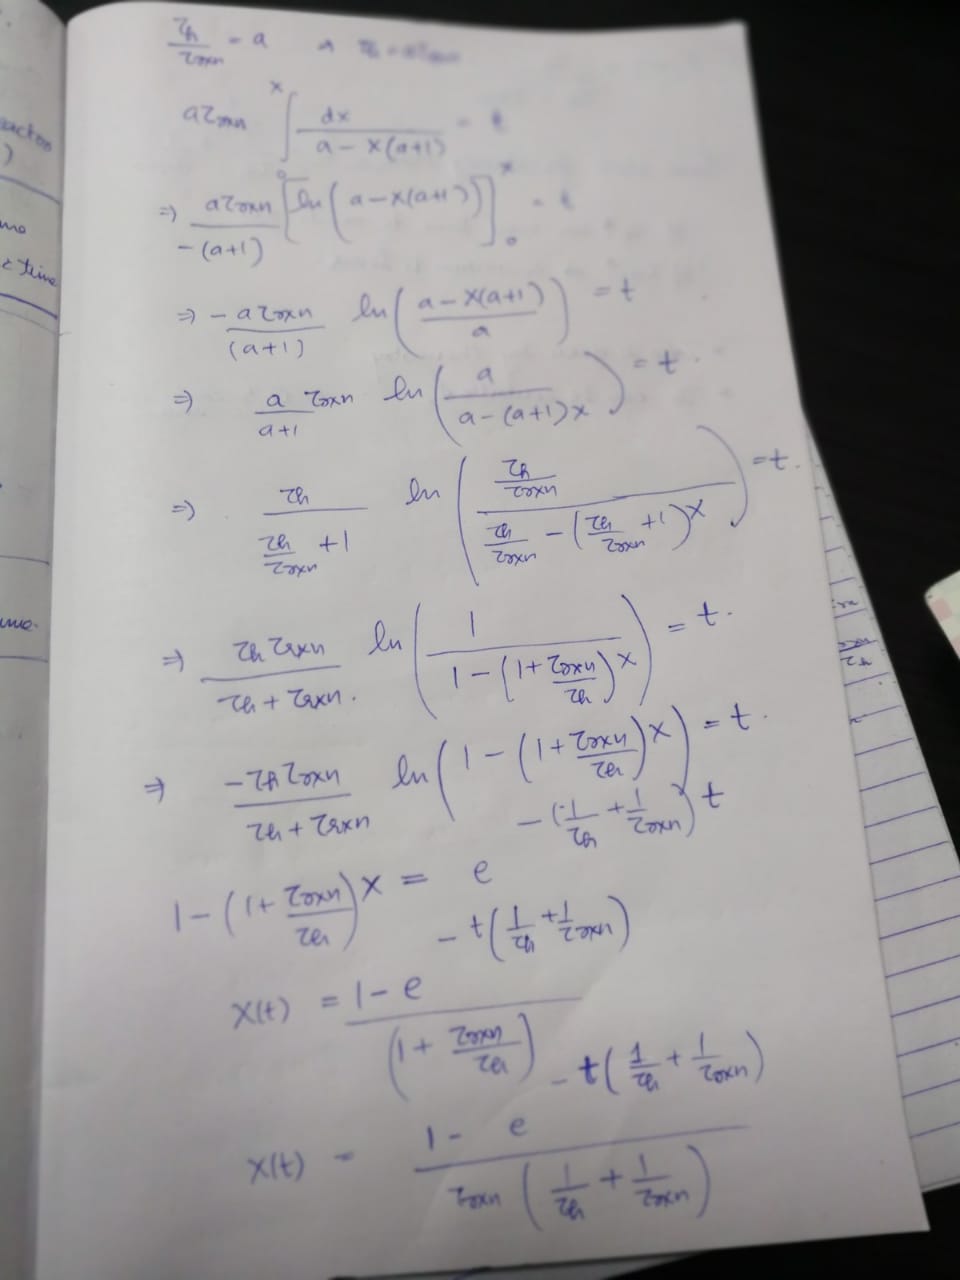 actor
)
time
τh/τrxn = a
aτrxn ∫₀ˣ dx/(a - x(a+1)) = t
⇒ aτrxn/-(a+1) [ln(a - x(a+1))]₀ˣ = t
⇒ -aτrxn/(a+1) ln((a - x(a+1))/a) = t
⇒ a/(a+1) τrxn ln(a/(a - (a+1)x)) = t.
⇒ τh/(τh/τrxn + 1) ln((τh/τrxn)/(τh/τrxn - (τh/τrxn + 1)x)) = t.
⇒ τh τrxn/(τh + τrxn) ln(1/(1 - (1 + τrxn/τh)x)) = t.
⇒ -τh τrxn/(τh + τrxn) ln(1 - (1 + τrxn/τh)x) = t.
1 - (1 + τrxn/τh)x = e^(-(1/τh + 1/τrxn)t)
x(t) = (1 - e^(-t(1/τh + 1/τrxn)))/(1 + τrxn/τh)
x(t) = (1 - e^(-t(1/τh + 1/τrxn)))/(τrxn(1/τh + 1/τrxn))